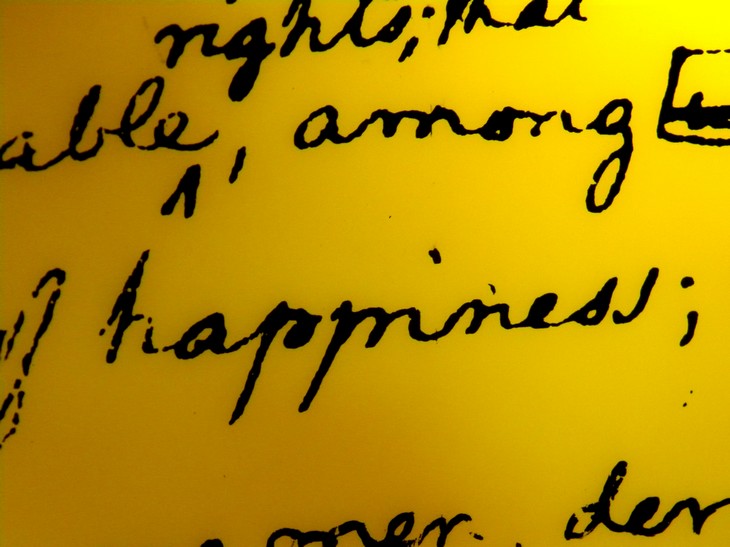 rights; that
able, among
of happiness;
mer, der